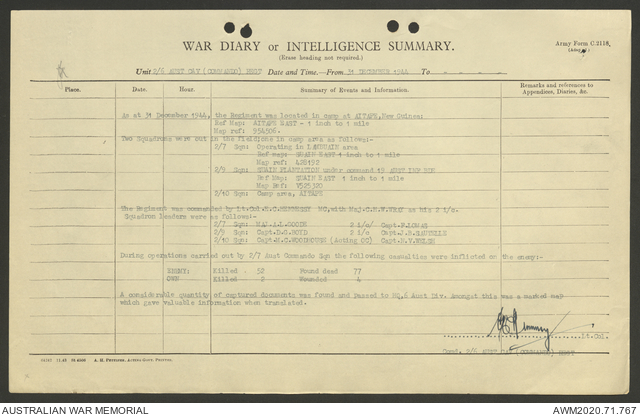 WAR DIARY or INTELLIGENCE SUMMARY.
(Erase heading not required.)
Army Form C.2118.
Unit 2/6 AUST CAV (COMMANDO) REGT Date and Time.—From 31 DECEMBER 1944 To
Place. Date. Hour. Summary of Events and Information. Remarks and references to Appendices, Diaries, &c.
As at 31 December 1944, the Regiment was located in camp at AITAPE, New Guinea:
Ref Map: AITAPE EAST - 1 inch to 1 mile
Map ref: 954506.
Two Squadrons were out in the field; one in camp area as follows:-
2/7 Sqn: Operating in area
Ref map: SUAIN EAST 1 inch to 1 mile
Map ref:
2/9 Sqn: SUAIN PLANTATION under command AUST INF
Ref Map: SUAIN EAST 1 inch to 1 mile
Map Ref
2/10 Sqn: Camp area, AITAPE
The Regiment was commanded by Lt.Col.E.C.HENNESSY MC, with Maj.C.H.W.WRAY as his 2 i/c.
Squadron leaders were as follows:-
2/7 Sqn: MAJ.A.L.GOODE 2 i/c/ Capt.F.LOMAS
2/9 Sqn: Capt.D.G.BOYD 2 i/c Capt.
2/10 Sqn: Capt.H.C.WOODHOUSE (Acting OC) Capt. WELSH
During operations carried out by 2/7 Aust Commando Sqn the following casualties were inflicted on the enemy:-
ENEMY: Killed 52 Found dead 77
OWN Killed 2 Wounded 4
A considerable quantity of captured documents was found and passed to HQ,6 Aust Div. Amongst this was a marked map
which gave valuable information when translated.
Lt.Col.
Comd. 2/6 AUST CAV (COMMANDO) REGT
AUSTRALIAN WAR MEMORIAL
AWM2020.71.767